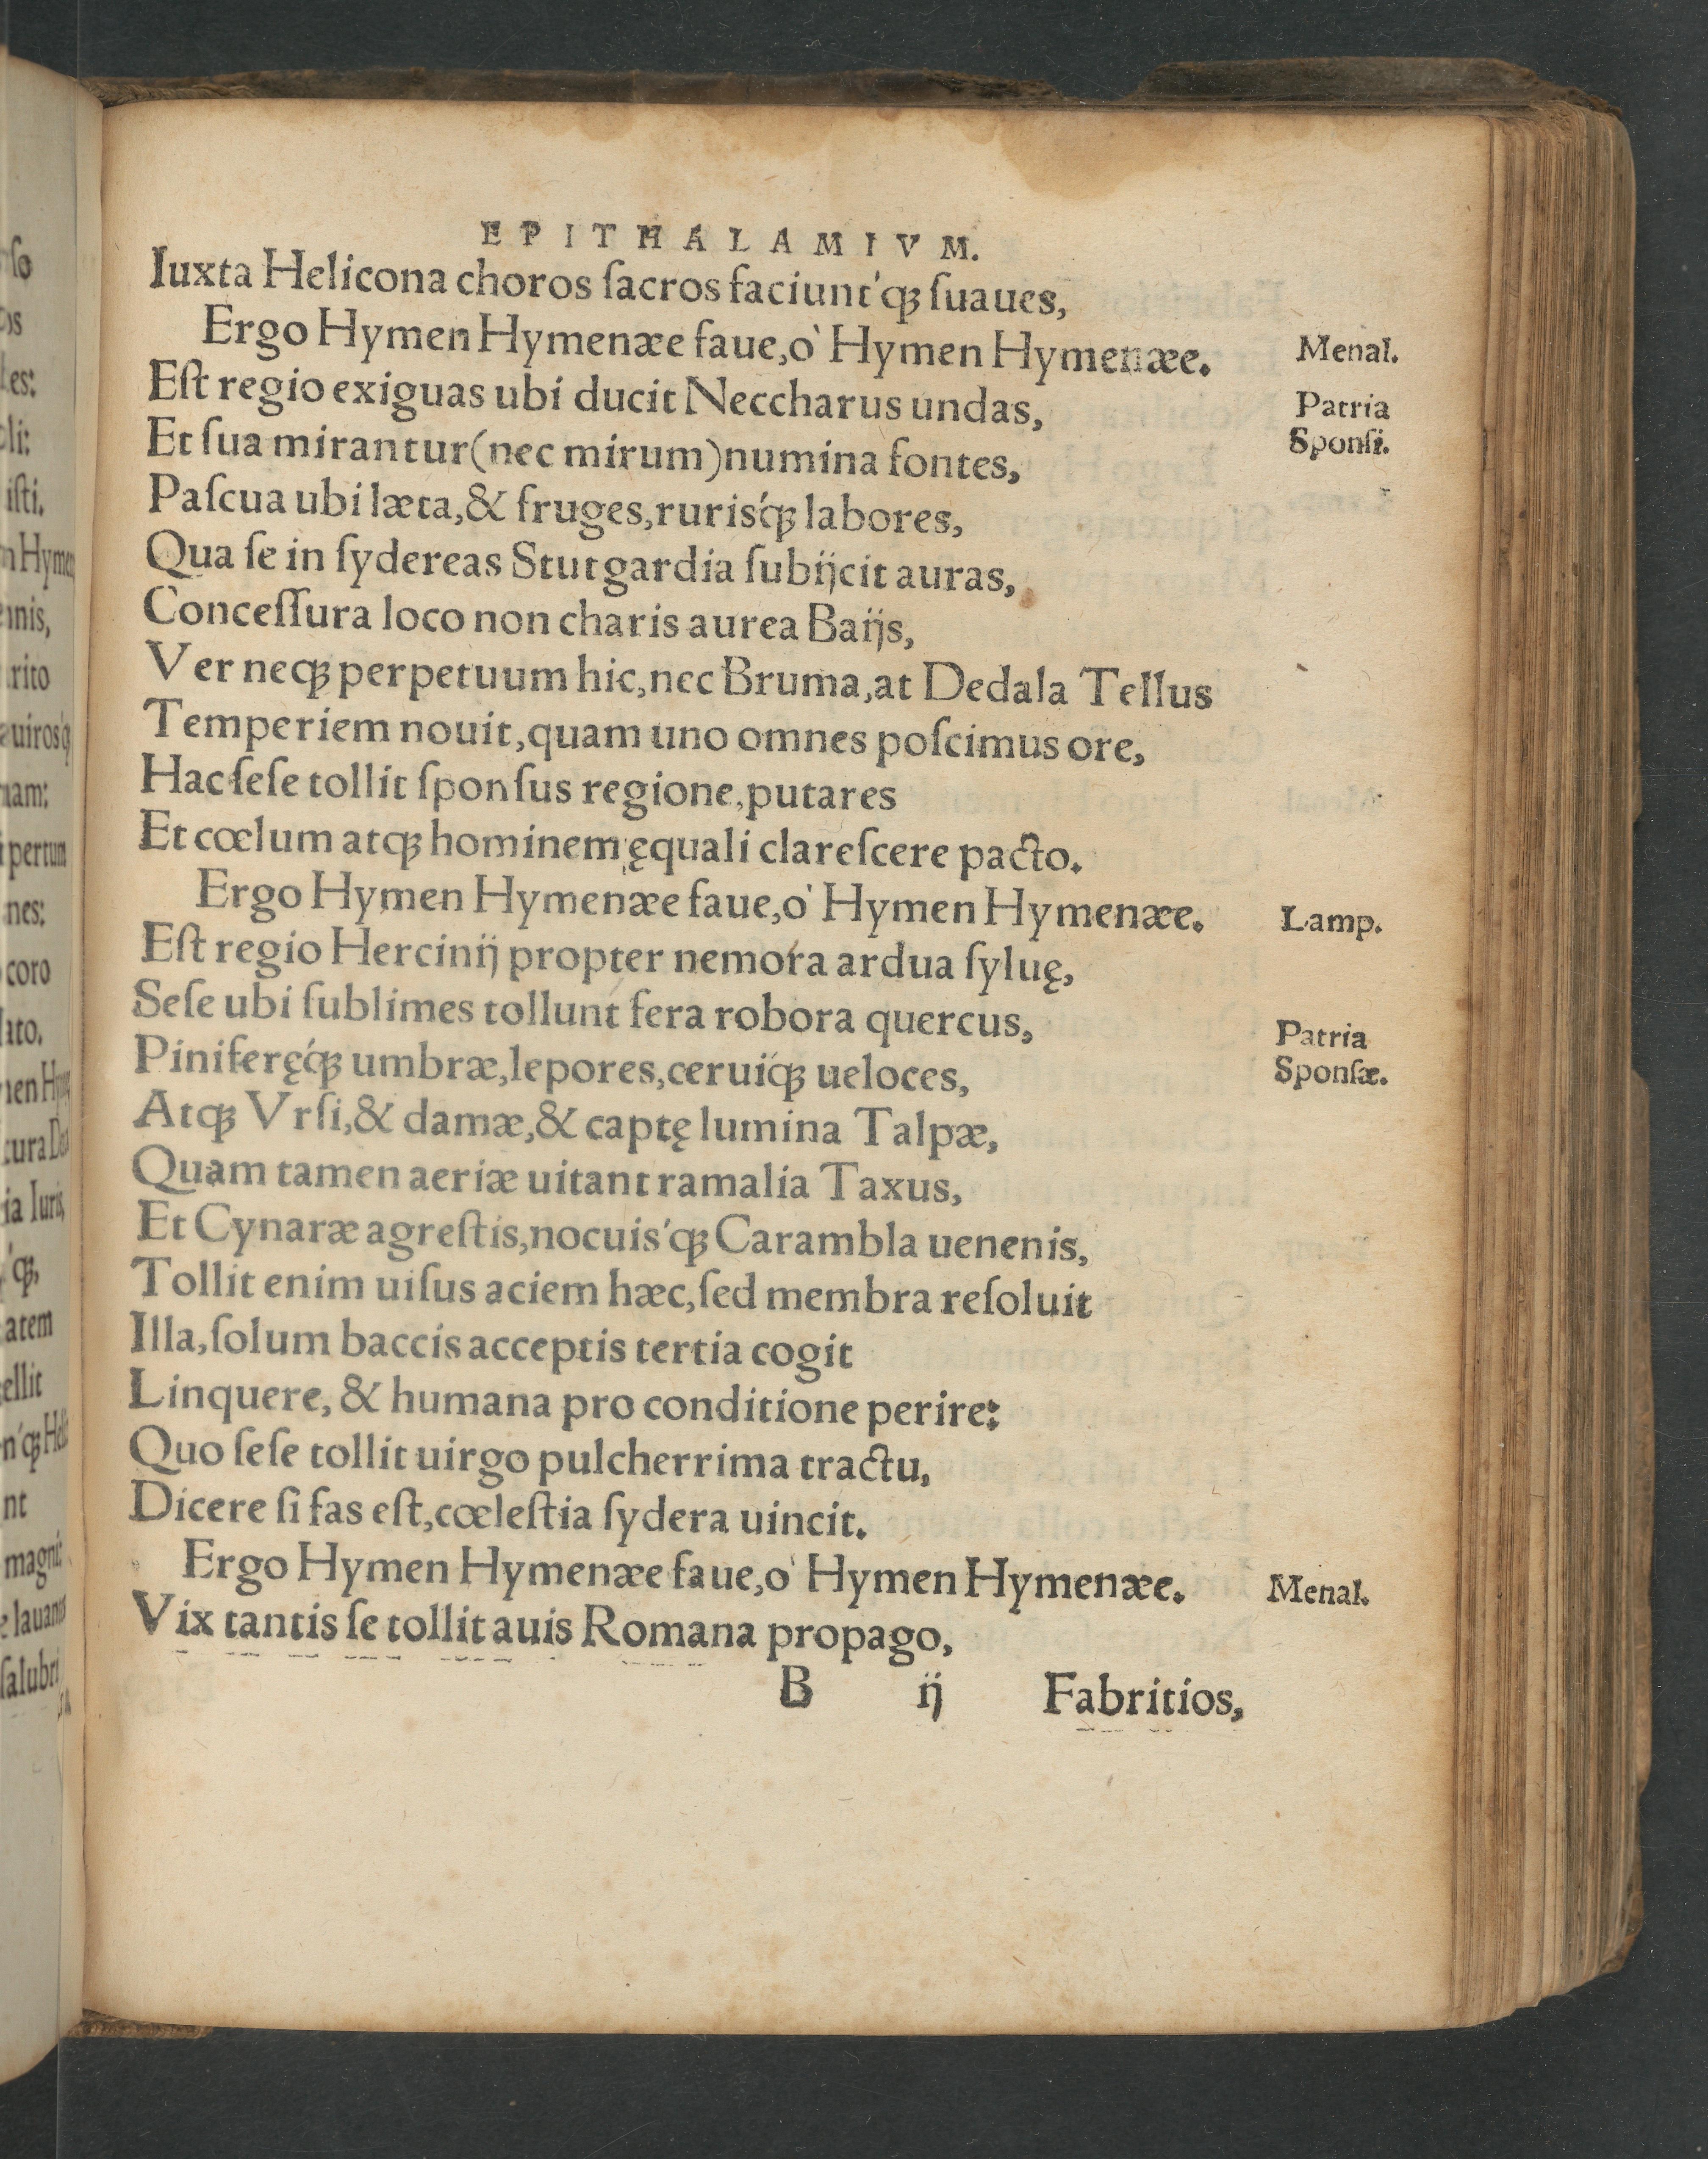 EPITHALAMIVM.
Iuxta Helicona choros ſacros faciunt'qꝫ ſuaues,
Ergo Hymen Hymenæe faue,ò Hymen Hymenæe.
Menal.
Eſt regio exiguas ubi ducit Neccharus undas,
Patria
Et ſua mirantur(nec mirum)numina fontes,
Sponſi.
Paſcua ubi læta,& fruges,ruris'qꝫ labores,
Qua ſe in ſydereas Stutgardia ſubijcit auras,
Conceſſura loco non charis aurea Baijs,
Ver neqꝫ perpetuum hic,nec Bruma,at Dedala Tellus
Temperiem nouit,quam uno omnes poſcimus ore,
Hac ſeſe tollit ſponſus regione,putares
Et cœlum atqꝫ hominem ęquali clareſcere pacto.
Ergo Hymen Hymenæe faue,ò Hymen Hymenæe.
Lamp.
Eſt regio Hercinij propter nemora ardua ſyluę,
Seſe ubi ſublimes tollunt fera robora quercus,
Patria
Piniferę'qꝫ umbræ,lepores,cerui'qꝫ ueloces,
Sponſæ.
Atqꝫ Vrſi,& damæ,& captę lumina Talpæ,
Quam tamen aeriæ uitant ramalia Taxus,
Et Cynaræ agreſtis,nocuis'qꝫ Carambla uenenis,
Tollit enim uiſus aciem hæc,ſed membra reſoluit
Illa,ſolum baccis acceptis tertia cogit
Linquere, & humana pro conditione perire:
Quo ſeſe tollit uirgo pulcherrima tractu,
Dicere ſi fas eſt,cœleſtia ſydera uincit.
Ergo Hymen Hymenæe faue,ò Hymen Hymenæe.
Menal.
Vix tantis ſe tollit auis Romana propago,
B ij Fabritios,